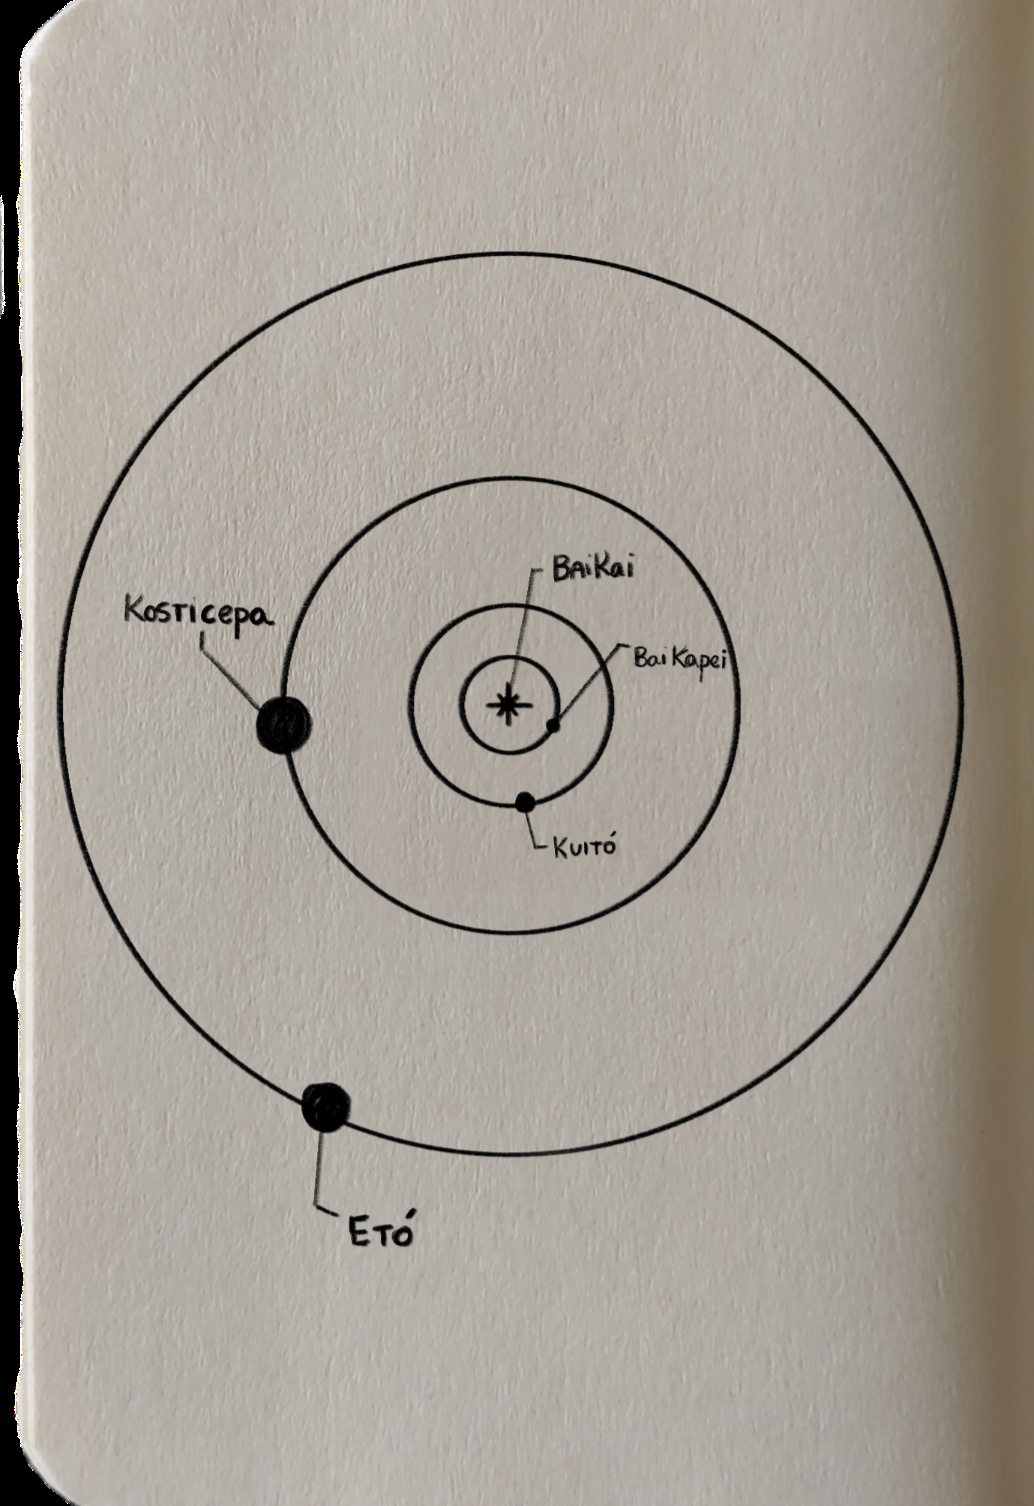 BaiKai
Kosticepa
Bai Kapei
Kuitó
Etó